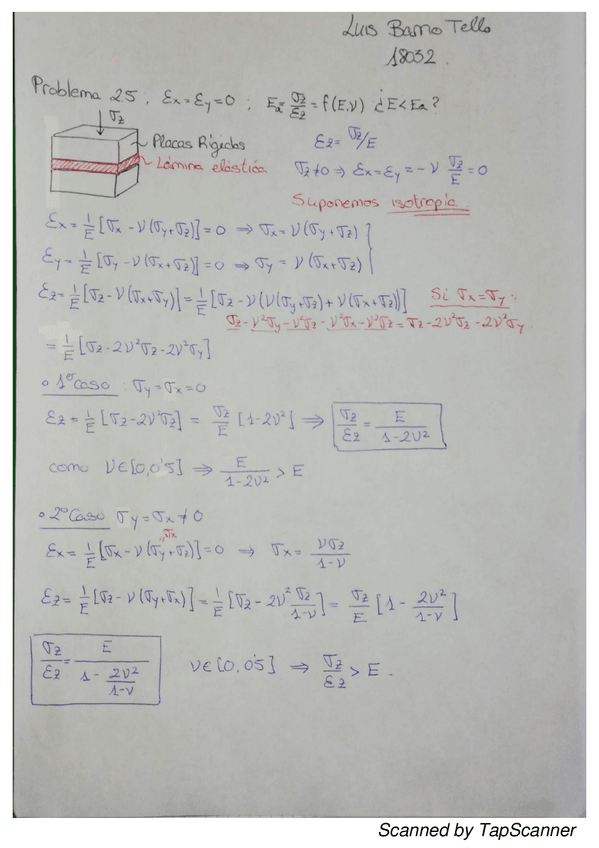 Luis Barro Tello
18032.
Problema 25. εx = εy = 0 ; Ea = σz/εz = f(E,ν) ¿E < Ea?
σz
Placas Rígidas
Lámina elástica
εz = σz/E
σz ≠ 0 ⇒ εx = εy = -ν σz/E = 0
Suponemos isotropía.
εx = 1/E [σx - ν(σy+σz)] = 0 ⇒ σx = ν(σy+σz)
εy = 1/E [σy - ν(σx+σz)] = 0 ⇒ σy = ν(σx+σz)
εz = 1/E [σz - ν(σx+σy)] = 1/E [σz - ν(ν(σy+σz) + ν(σx+σz))] Si σx = σy :
σz - ν²σy - ν²σz - ν²σx - ν²σz = σz - 2ν²σz - 2ν²σy.
= 1/E [σz - 2ν²σz - 2ν²σy]
• 1er Caso : σy = σx = 0
εz = 1/E [σz - 2ν²σz] = σz/E [1 - 2ν²] ⇒ σz/εz = E/(1-2ν²)
como ν∈[0,0'5] ⇒ E/(1-2ν²) > E
• 2º Caso σy = σx ≠ 0
σx
εx = 1/E [σx - ν(σy+σz)] = 0 ⇒ σx = νσz/(1-ν)
εz = 1/E [σz - ν(σy+σx)] = 1/E [σz - 2ν² σz/(1-ν)] = σz/E [1 - 2ν²/(1-ν)]
σz/εz = E/(1 - 2ν²/(1-ν)) ν∈[0,0'5] ⇒ σz/εz > E.
Scanned by TapScanner